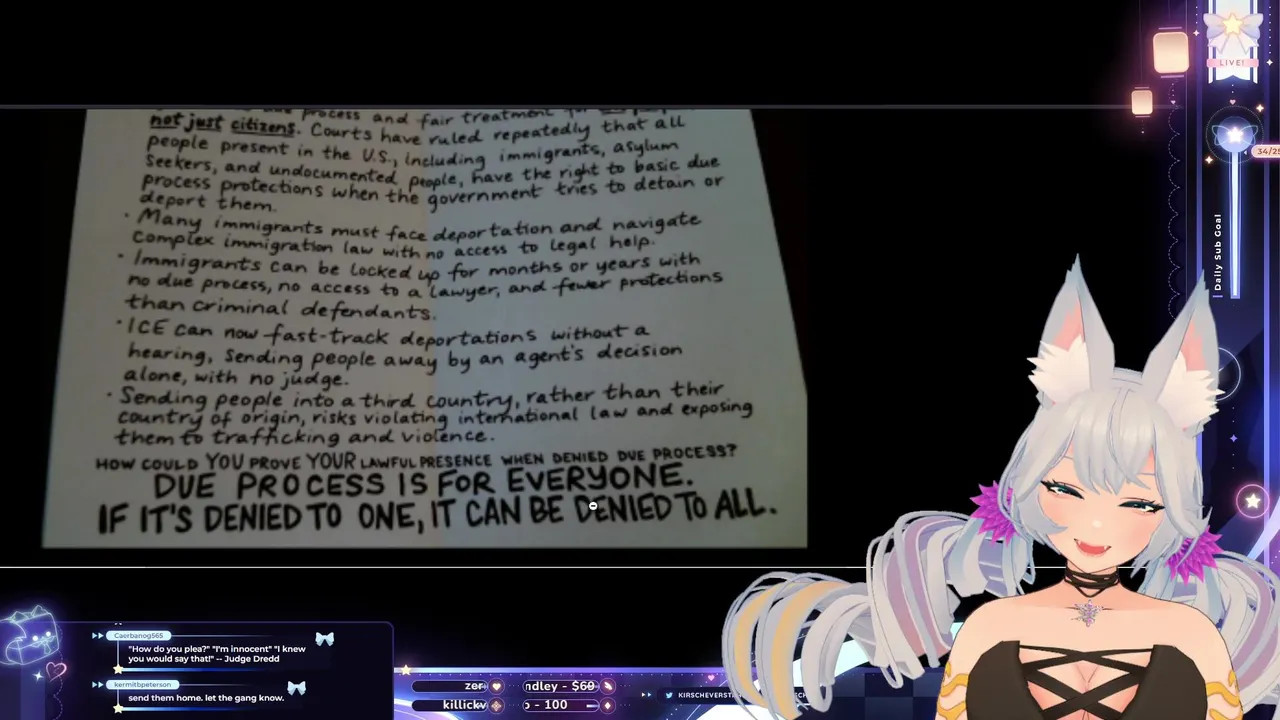 process and fair treatment for
not just citizens. Courts have ruled repeatedly that all
people present in the U.S., including immigrants, asylum
seekers, and undocumented people, have the right to basic due
process protections when the government tries to detain or
deport them.
• Many immigrants must face deportation and navigate
complex immigration law with no access to legal help.
• Immigrants can be locked up for months or years with
no due process, no access to a lawyer, and fewer protections
than criminal defendants.
• ICE can now fast-track deportations without a
hearing, sending people away by an agent's decision
alone, with no judge.
• Sending people into a third country, rather than their
country of origin, risks violating international law and exposing
them to trafficking and violence.
HOW COULD YOU PROVE YOUR LAWFUL PRESENCE WHEN DENIED DUE PROCESS?
DUE PROCESS IS FOR EVERYONE.
IF IT'S DENIED TO ONE, IT CAN BE DENIED TO ALL.
LIVE!
34/25
Daily Sub Goal
Caerbanog565
"How do you plea?" "I'm innocent" "I knew
you would say that!" -- Judge Dredd
kermitbpeterson
send them home. let the gang know.
zer
ndley - $60
killick
- 100
KIRSCHEVERST